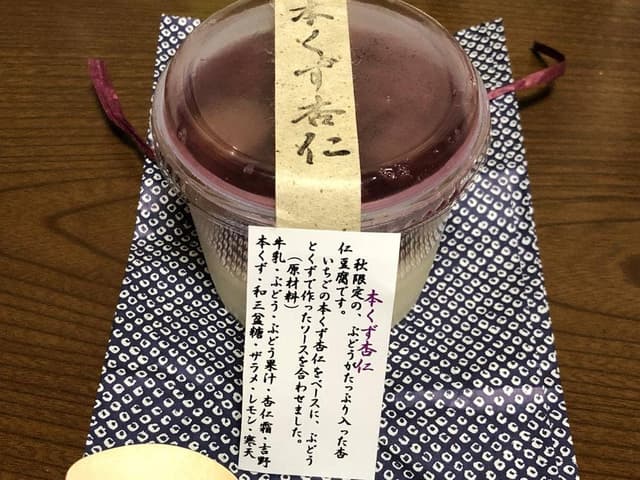 本くず杏仁
本くず杏仁
秋限定の、ぶどうがたっぷり入った杏
仁豆腐です。
いちごの本くず杏仁をベースに、ぶどう
とくずで作ったソースを合わせました。
(原材料)
牛乳・ぶどう・ぶどう果汁・杏仁霜・吉野
本くず・和三盆糖・ザラメ・レモン・寒天